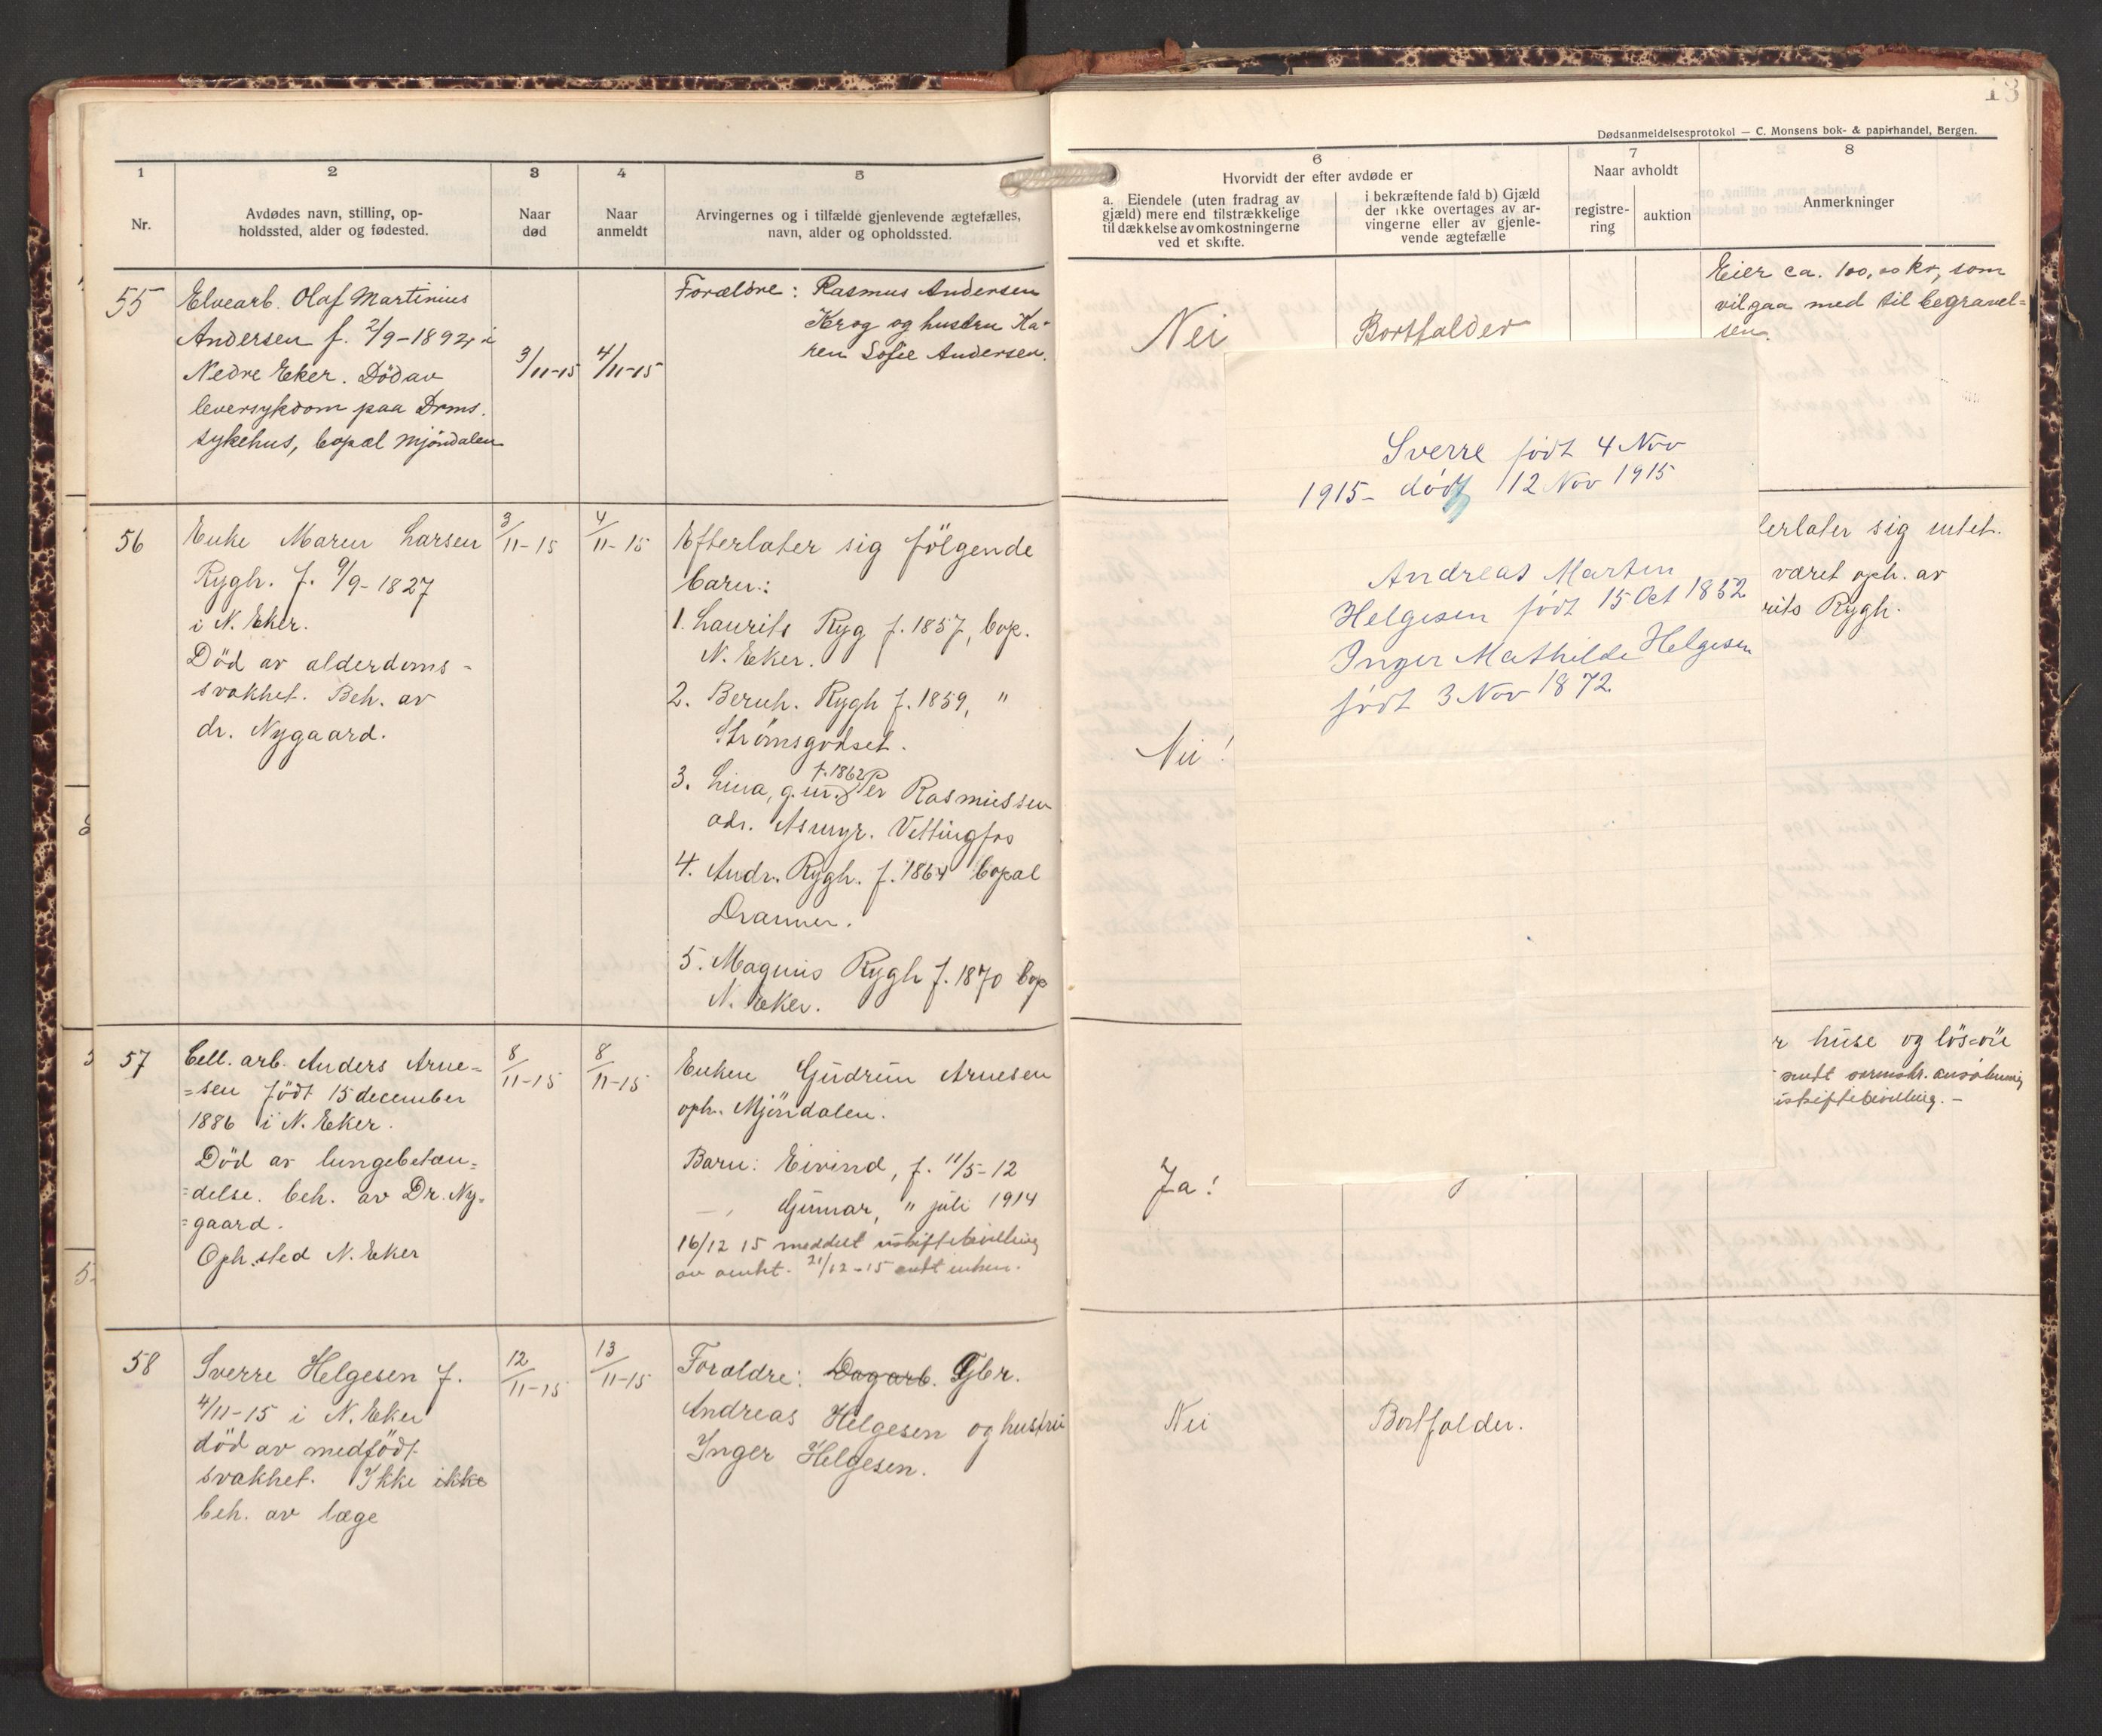 1
2
3
4
5
Nr.
Avdødes navn, stilling, op-
holdssted, alder og fødested.
Naar
død
Naar
anmeldt
Arvingernes og i tilfælde gjenlevende ægtefælles,
navn, alder og opholdssted.
55
Elvearb. Olaf Martinius
Andersen f. 2/9-1892 i
Nedre Eker. Död av
leversykdom paa Drms.
sykehus, bopæl Mjöndalen
3/11-15
4/11-15
Forældre: Rasmus Andersen
Krog og hustru Ka-
ren Sofie Andersen.
56
Enke Maren Larsen
Rygh. f. 9/9-1827
i N. Eker.
Död av alderdoms-
svakhet. Beh. av
dr. Nygaard.
3/11-15
4/11-15
Efterlater sig følgende
barn:
1. Laurits Ryg f. 1857, bop.
N. Eker.
2. Bernh. Rygh f. 1859, "
Strömsgodset.
f. 1862
3. Lina, g.m. Per Rasmussen
adr. Asmyr. Vittingfos
4. Andr. Rygh. f. 1864 bopæl
Drammen.
5. Magnus Rygh f. 1870 bop
N. Eker.
57
Cell. arb. Anders Arne=
=sen födt 15 december
1886 i N. Eker.
Död av lungebetæn=
=delse. beh. av Dr. Ny=
=gaard.
Oph.sted N. Eker
8/11-15
8/11-15
Enken Gudrun Arnesen
oph. Mjöndalen.
Barn: Eivind, f. 11/5-12
Gunnar, " juli 1914
16/12 15 meddelt uskiftebevilling
av amtet. 21/12-15 sendt enken.
58
Sverre Helgesen f.
4/11-15 i N. Eker
död av medfödt
svakhet. Ikke ikke
beh. av læge
12/11-15
13/11-15
Forældre: Dagarb. Gbr.
Andreas Helgesen og hustru
Inger Helgesen.
13
Dødsanmeldelsesprotokol — C. Monsens bok- & papirhandel, Bergen.
6
7
8
Hvorvidt der efter avdøde er
a. Eiendele (uten fradrag av
gjæld) mere end tilstrækkelige
til dækkelse av omkostningerne
ved et skifte.
i bekræftende fald b) Gjæld
der ikke overtages av ar-
vingerne eller av gjenle-
vende ægtefælle
Naar avholdt
registre-
ring
auktion
Anmerkninger
Nei
Bortfalder
Eier ca. 100,00 kr, som
vil gaa med til begravel=
sen.
Sverre født 4 Nov
1915 - død 12 Nov 1915
Andreas Marten
Helgesen født 15 Oct 1852
Inger Mathilde Helgesen
født 3 Nov 1872.
Nei!
terlater sig intet.
været oph. av
rits Rygh.
Ja!
r huse og lös-öre
uskiftebevilling. -
Nei
Bortfalder.